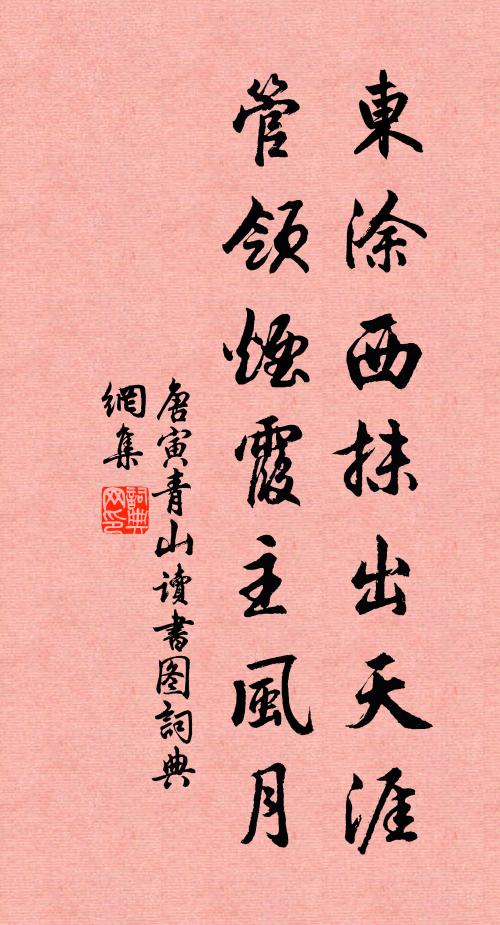 東涂西抹出天涯
管領煙霞主風月
唐寅青山讀書图詞典
網集
詞典
网印